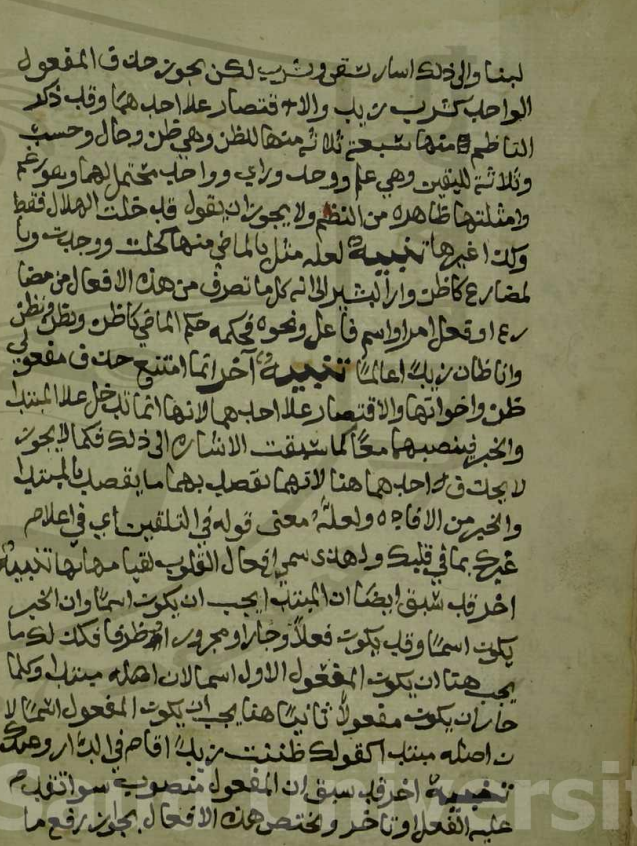 لبنا والى ذلك اشار بسقى وشرب لكن يجوز حذف المفعول
الواحد كشرب زيد والاقتصار على احدهما وقد ذكر
الناظم منها سبعة ثلاثة منها للظن وهي ظن وخال وحسب
وثلاثة لليقين وهي علم ووجد وراي وواحد محتمل لهما وهو زعم
وامثلتها ظاهره من النظم ولا يجوز ان تقول قد خلت الهلال فقط
وكذا غيرها تنبيه لعله مثل بالماضي منها كخلت ووجدت وبا
لمضارع كاظن وارا ليشير الى انه كل ما تصرف من هذه الافعال من مضا
رع او فعل امر او اسم فاعل ونحوه في حكمه حكم الماضي كاظن ويظن ونظن
وانا ظان زيدا عالما تنبيه آخر انما امتنع حذف مفعولي
ظن واخواتها والاقتصار على احدهما لانها انما تدخل على المبتدا
والخبر فينصبهما معا كما سبقت الاشاره الى ذلك فكما لا يجوز
لا يحذف احدهما هنا لانهما يقصد بهما ما يقصد بالمبتدا
والخبر من الافاده ولعله معنى قوله في التلقين اي في اعلام
غيرك بما في قلبك ولهذا سمى افعال القلوب لقيامها بها تنبيه
اخر قد سبق ايضا ان المبتدا يجب ان يكون اسما وان الخبر
يكون اسما وقد يكون فعلا وجارا ومجرور او ظرفا فكذلك ما
يجب هنا ان يكون المفعول الاول اسما لان اصله مبتدا وكلما
جاز ان يكون مفعولا ثانيا هنا يجب ان يكون المفعول اسما لا
ن اصله مبتدا كقولك ظننت زيدا اقام في الدار وعندك
تنبيه اخر قد سبق ان المفعول منصوب سوا تقدم
عليه الفعل او تاخر وتختص هذه الافعال بجواز رفع ما
Saud Universit